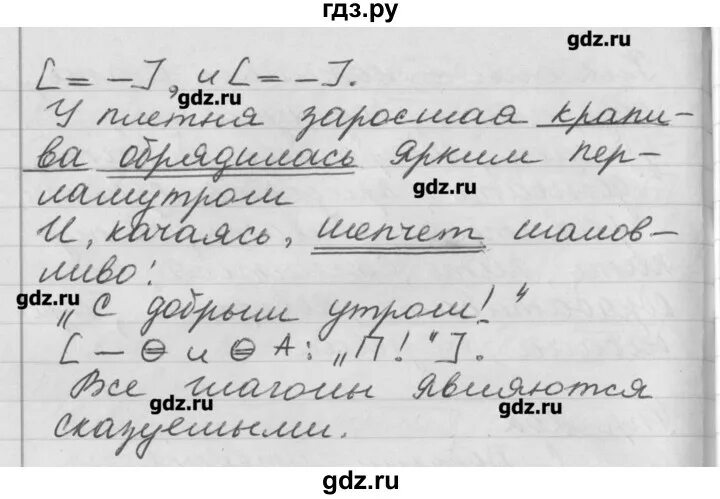 гдз.ру
gdz.ru
[= –], и [= –].
gdz.ru
У плетня заросшая крапи-
ва обрядилась ярким пер-
gdz.ru
ламутром
И, качаясь, шепчет шалов-
ливо:
gdz.ru
„С добрым утром!“
[– ⊖ и ⊖ А: „П!“].
Все глаголы являются
gdz.ru
gdz.ru
сказуемыми.
gdz.ru